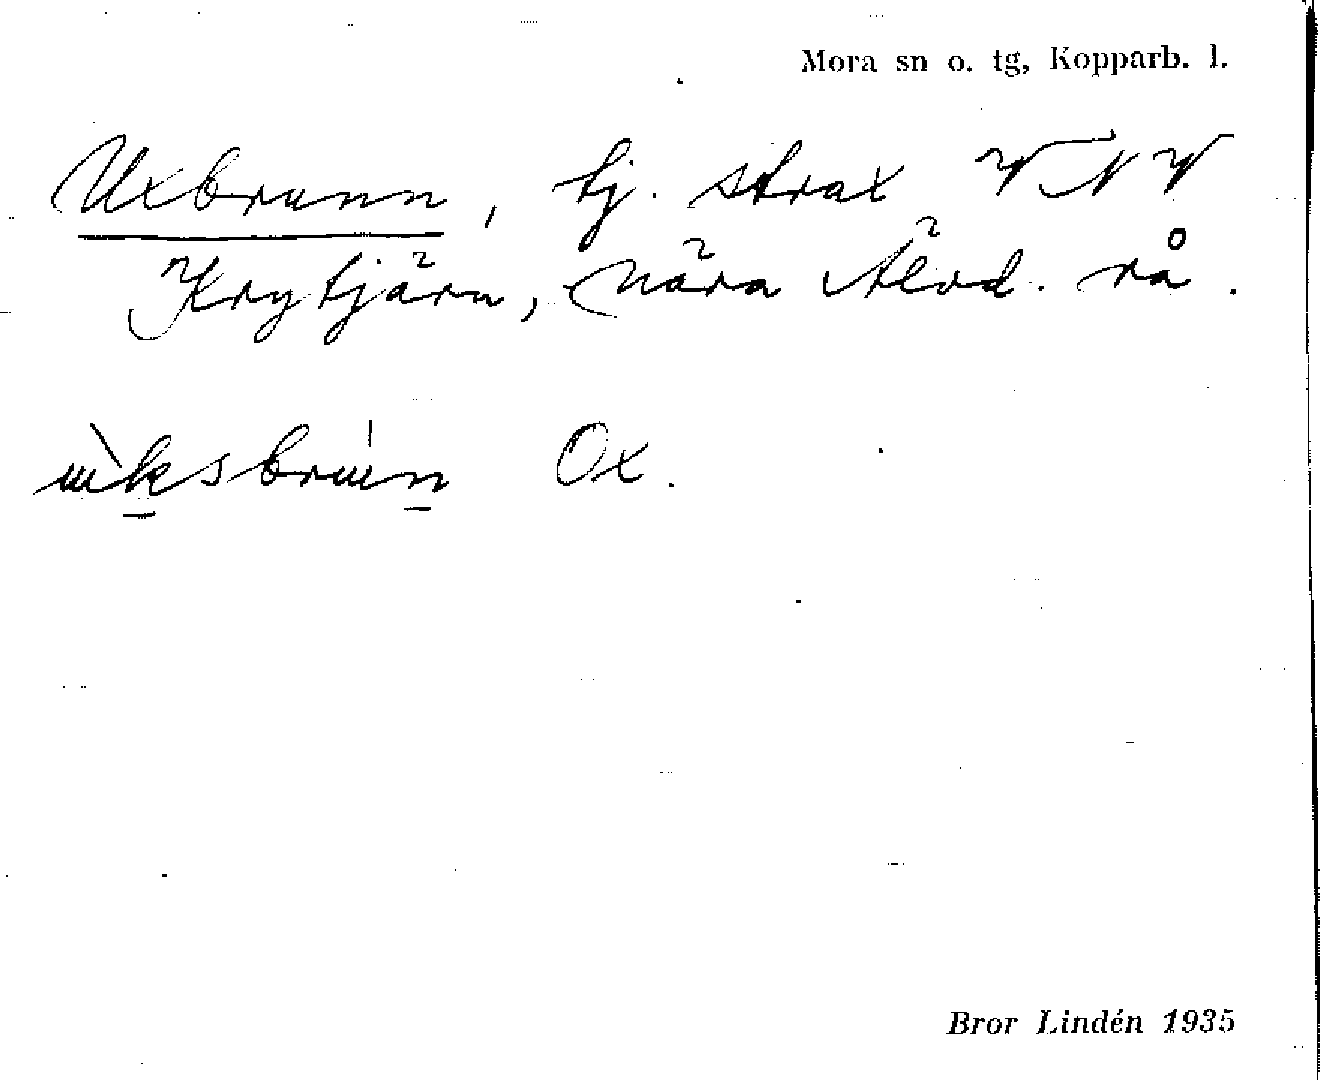 Mora sn o. tg, Kopparb. l.
Uxbrunn, tj. strax VNV
Krytjärn, nära Älvd. rå.
ùksbrún Ox.
Bror Lindén 1935